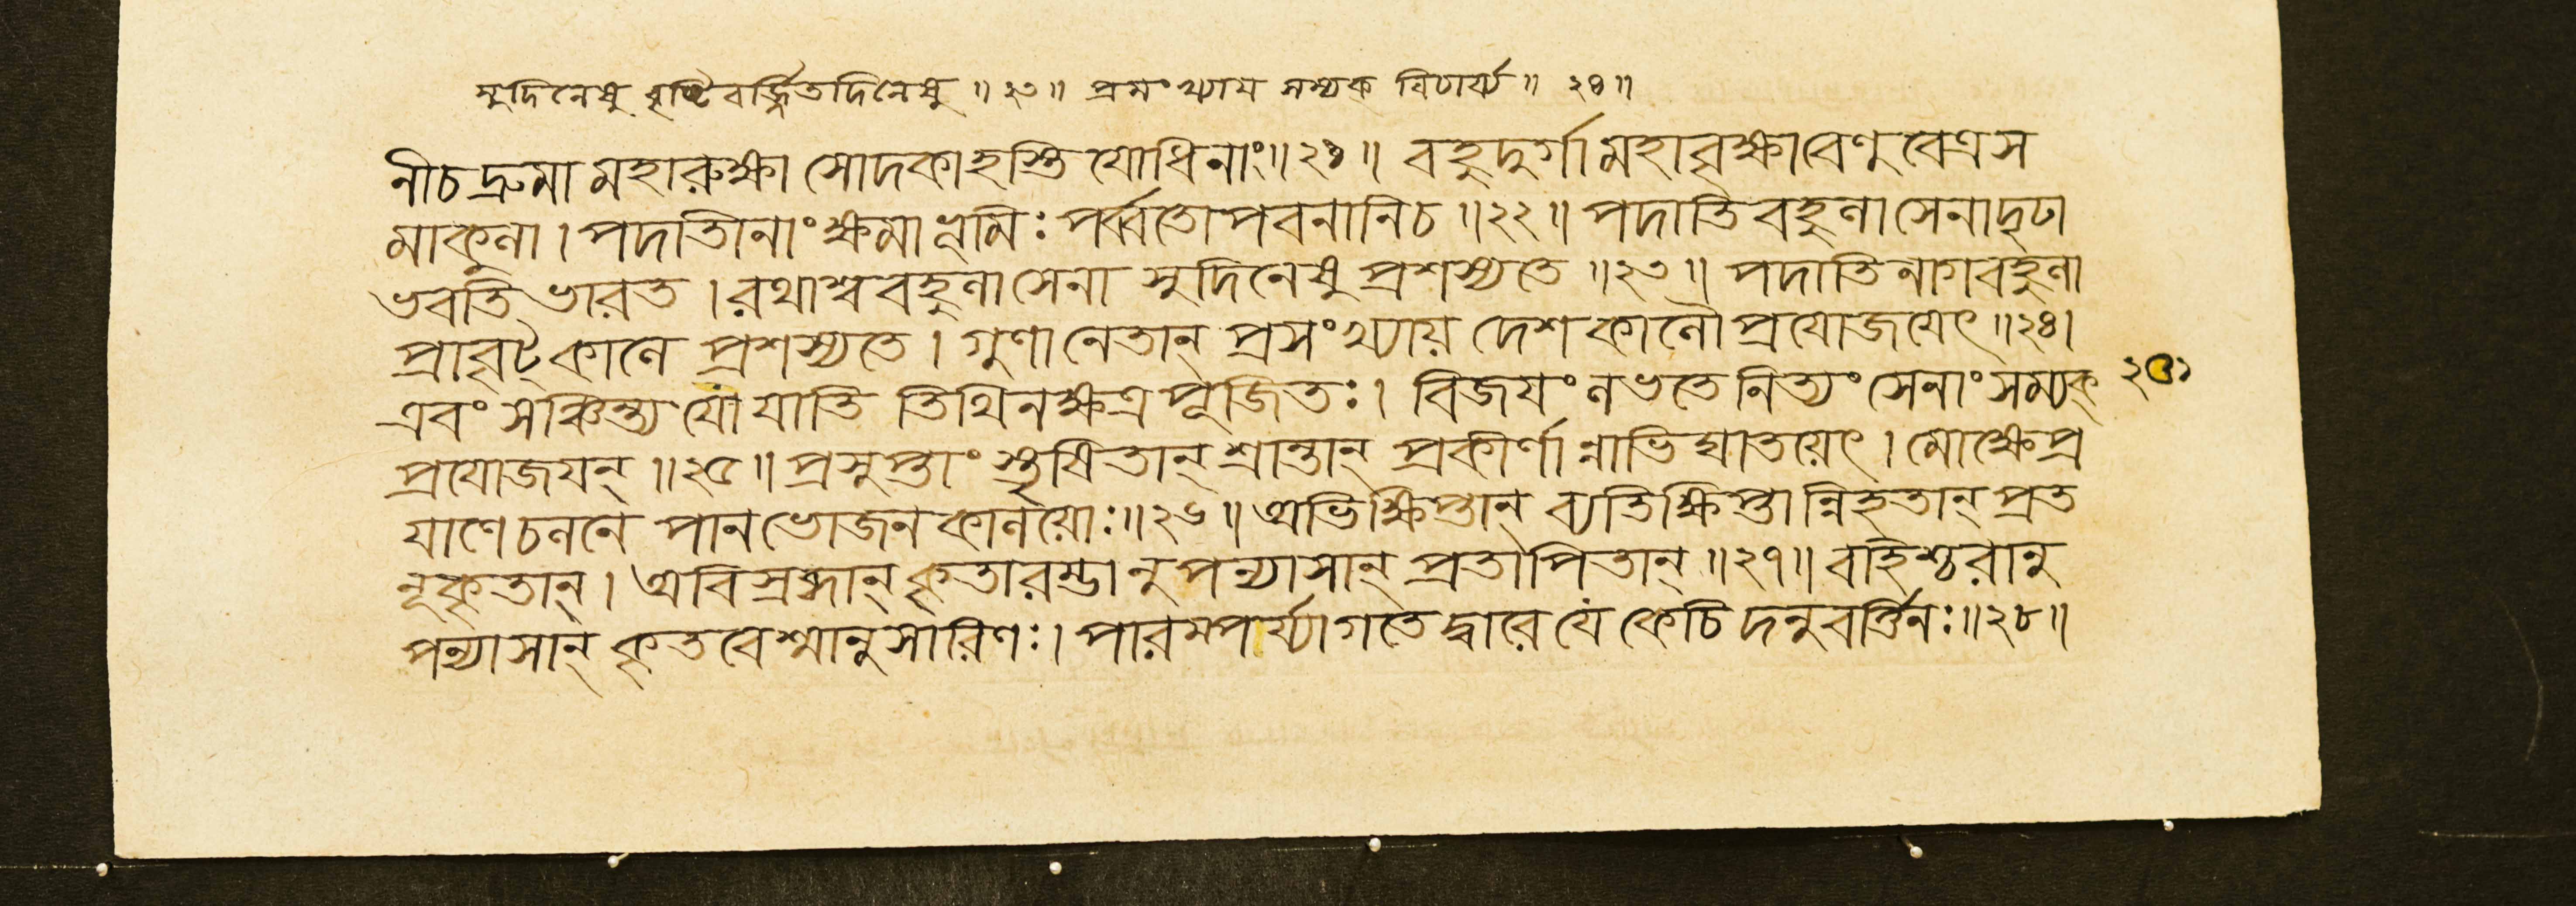 সুদিনেষু বৃষ্টিবর্জ্জিতদিনেষু ॥ ২৩ ॥ প্রসংখ্যায় সম্যক্ বিচার্য্য ॥ ২৪ ॥
নীচদ্রুমা মহারুক্ষা সোদকাহস্তি যোধিনাং ॥ ২১ ॥ বহুদুর্গা মহাবৃক্ষা বেণু বেত্র স
মাকুলা । পদাতীনাং ক্ষমা ভূমিঃ পর্ব্বতোপবনানি চ ॥ ২২ ॥ পদাতি বহুলা সেনা দৃঢা
ভবতি ভারত । রথাশ্ব বহুলা সেনা সুদিনেষু প্রশস্যতে ॥ ২৩ ॥ পদাতি নাগবহুলা
প্রাবৃট্কালে প্রশস্যতে । গুণানেতান্ প্রসংখ্যায় দেশকালৌ প্রযোজয়েৎ ॥ ২৪ ।
এবং সঞ্চিন্ত্য যো যাতি তিথিনক্ষত্র পূজিতঃ । বিজয়ং লভতে নিত্যং সেনাং সম্যক্ ২৫১
প্রযোজয়ন্ ॥ ২৫ ॥ প্রসুপ্তাংস্তৃষিতান্ শ্রান্তান্ প্রকীর্ণান্নাভিঘাতয়েৎ । মোক্ষে প্র
যাণে চলনে পানভোজন কালয়োঃ ॥ ২৬ ॥ অভিক্ষিপ্তান্ ব্যতিক্ষিপ্তান্নিহতান্ প্রত
নূকৃতান্ । অবিস্রব্ধান্ কৃতারম্ভানুপন্যাসান্ প্রতাপিতান্ ॥ ২৭ ॥ বহিশ্চরানু
পন্যাসান্ কৃতবেশ্মানুসারিণঃ । পারম্পর্য্যাগতে দ্বারে যে কেচিদনুবর্ত্তিনঃ ॥ ২৮ ॥